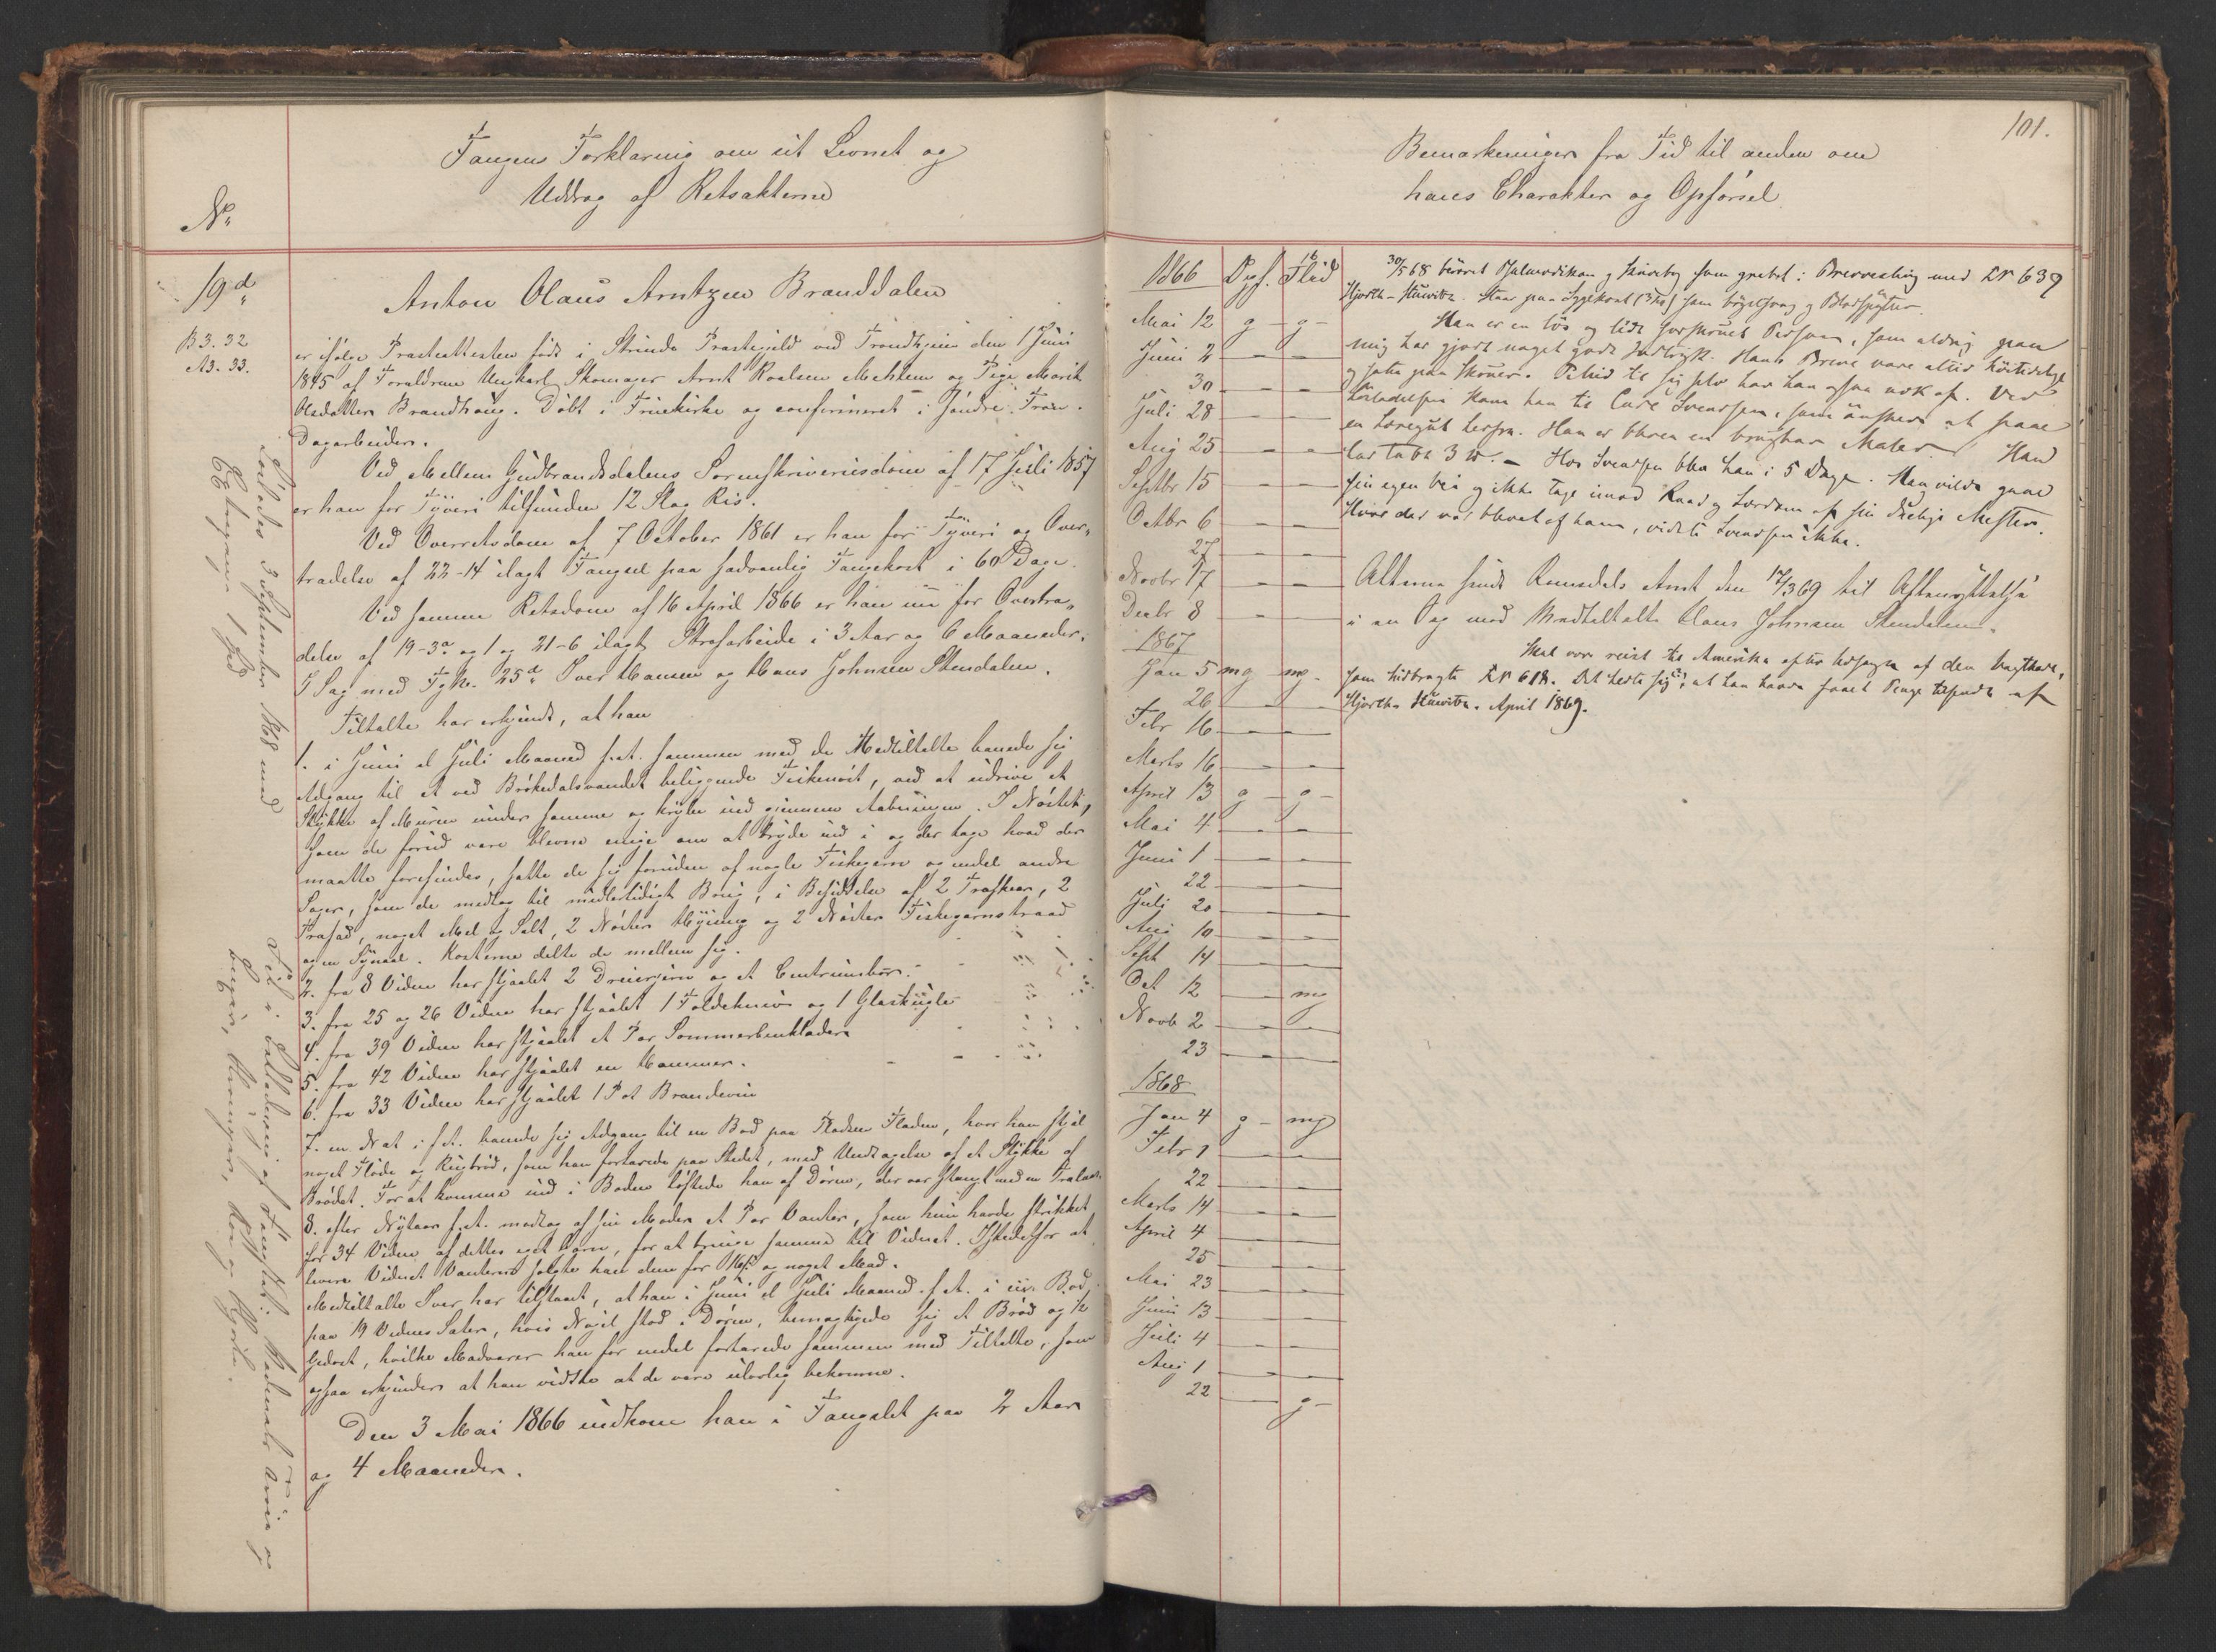 Fangens Forklaring om sit Levnet og
Uddrag af Retsakterne
No
19d
B 3. 32
A 3. 33.
Anton Olaus Arntzen Branddalen
er ifølge Præsteattesten født i Strinde Præstegjeld ved Trondhjem den 1 Juni
1845 af Forældrene Ungkarl Skomager Arnt Roalsen Mehlem og Pige Marit
Olsdatter Brandhoug. Døbt i Fruekirke og confirmeret i Søndre Fron.
Dagarbeider.
Ved Mellem Gudbrandsdalens Sorenskriverisdom af 17 Juli 1857
er han for Tyveri tilfunden 12 Slag Ris.
Ved Overretsdom af 7 October 1861 er han for Tyveri og Over-
trædelse af 22-14 ilagt Fængsel paa sædvanlig Fangekost i 60 Dage.
Ved samme Retsdom af 16 April 1866 er han nu for Overtræ-
delse af 19-3a og 1 og 21-6 ilagt Strafarbeide i 3 Aar og 6 Maaneder.
I Sag med Fg No. 25d Iver Hansen og Claus Johnsen Stendalen.
Tiltalte har erkjendt, at han
1. i Juni el Juli Maaned f.A. sammen med de Medtiltalte banede sig
Adgang til et ved Brokedalsvandet beliggende Fiskenøst, ved at udrive et
Stykke af Muren under samme og krybe ind gjennem Aabningen. I Nøstet,
som de forud vare blevne enige om at bryde ind i og der tage hvad der
maatte forefindes, satte de sig foruden af nogle Fiskegarn og endel andre
Sager, som de medtog til midlertidigt Brug, i Besiddelse af 2 Træskeer, 2
Træfad, noget Mel og Salt, 2 Nøster Hysing og 2 Nøster Fiskegarnstraad
og en Synaal. Kosterne delte de mellem sig.
2. fra 8 Vidne har stjaalet 2 Dreierjern og et Centrumsbor.
3. fra 25 og 26 Vidne har stjaalet 1 Foldekniv og 1 Glaskugle
4. fra 39 Vidne har stjaalet et Par Sommerbenklæder
5. fra 42 Vidne har stjaalet en Hammer.
6. fra 33 Vidne har stjaalet 1 Pot Brændeviin
7. en Nat i f.A. banede sig Adgang til en Bod paa Pladsen Fladen, hvor han stjal
noget Fløde og Rugbrød, som han fortærede paa Stedet, med Undtagelse af et Stykke af
Brødet. For at komme ind i Boden løftede han af Døren, der var stængt med en Trælaas.
8. efter Nytaar f.A. modtog af sin Moder et Par Vanter, som hun havde strikket
for 34 Vidne af dettes eget Garn, for at bringe samme til Vidnet. Istedetfor at
levere Vidnet Vanterne solgte han dem for 16 s og noget Mad.
Medtiltalte Iver har tilstaaet, at han i Juni el Juli Maaned f.A. i en Bod
paa 19 Vidnes Sæter, hvis Nøgel stod i Døren, bemægtigede sig et Brød og 1/2
Gedost, hvilke Madvarer han for endel fortærede sammen med Tiltalte, som
ogsaa erkjender at han vidste at de vare ulovlig bekomne.
Den 3 Mai 1866 indkom han i Fængslet paa 2 Aar
og 4 Maaneder.
Løslades 3 September 1868 med
Extrapenge 1 Spd
101.
Bemærkninger fra Tid til anden om
hans Charakter og Opførsel
1866 Opf. Flid
Mai 12 g - g -
Juni 2 — —
30 — —
Juli 28 — —
Aug 25 — —
Septbr 15 — —
Octbr 6 — —
27 — —
Novbr 17 — —
Decbr 8 — —
1867
Jan 5 mg mg -
26 — —
Febr 16 — —
Marts 16 — —
April 13 g - g -
Mai 4 — —
Juni 1 — —
22 — —
Juli 20 — —
Aug 10 — —
Sept 14 — —
Oct 12 — mg
Novb 2 — —
23 — —
1868
Jan 4 g - mg
Febr 1 — —
22 — —
Marts 14 — —
April 4 — —
25 — —
Mai 23 — —
Juni 13 — —
Juli 4 — —
Aug 1 — —
22 — g -
30/5 68 som grebet i Brevvexling med Er 639
Han er en løs og lidt Person, som aldrig paa
mig har gjort noget godt Indtryk. Hans Breve vare altid høitidelige
Løsladelsen kom han til Carl Svendsen, som ønskede at faae
en Læregut herfra. Han er bleven en brugbar Maler. Han
har tabt 3 . - Hos Svendsen blev han i 5 Dage. Han vilde gaae
sin egen Vei og ikke tage imod Raad og Lærdom af sin Mester.
Hvor der var blevet af ham, vidste Svendsen ikke.
Akterne sendt Romsdals Amt den 17/3 69 til Afbenyttelse
i en Sag mod Medtiltalte Claus Johnsen Stendalen.
Skal være reist til Amerika efter Udsagn af den ,
som hidbragte Er 618. Det hedte sig, at han havde faaet Penge tilsendt af
April 1869.